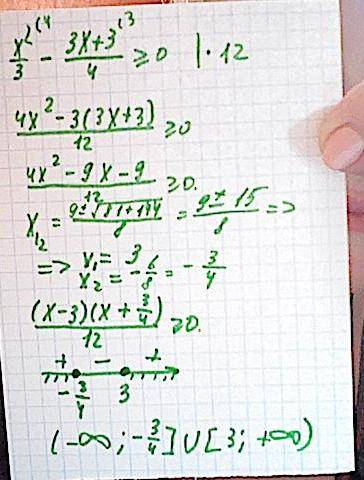 x²⁽⁴/3 - 3x+3⁽³/4 ≥ 0 | · 12
4x² - 3(3x+3)/12 ≥ 0
4x² - 9x - 9/12 ≥ 0.
x₁₂ = 9±√81+144/8 = 9±15/8 =>
=> x₁ = 3
x₂ = -6/8 = -3/4
(x-3)(x+3/4)/12 ≥ 0.
+ - +
-3/4 3
(-∞; -3/4] ∪ [3; +∞)